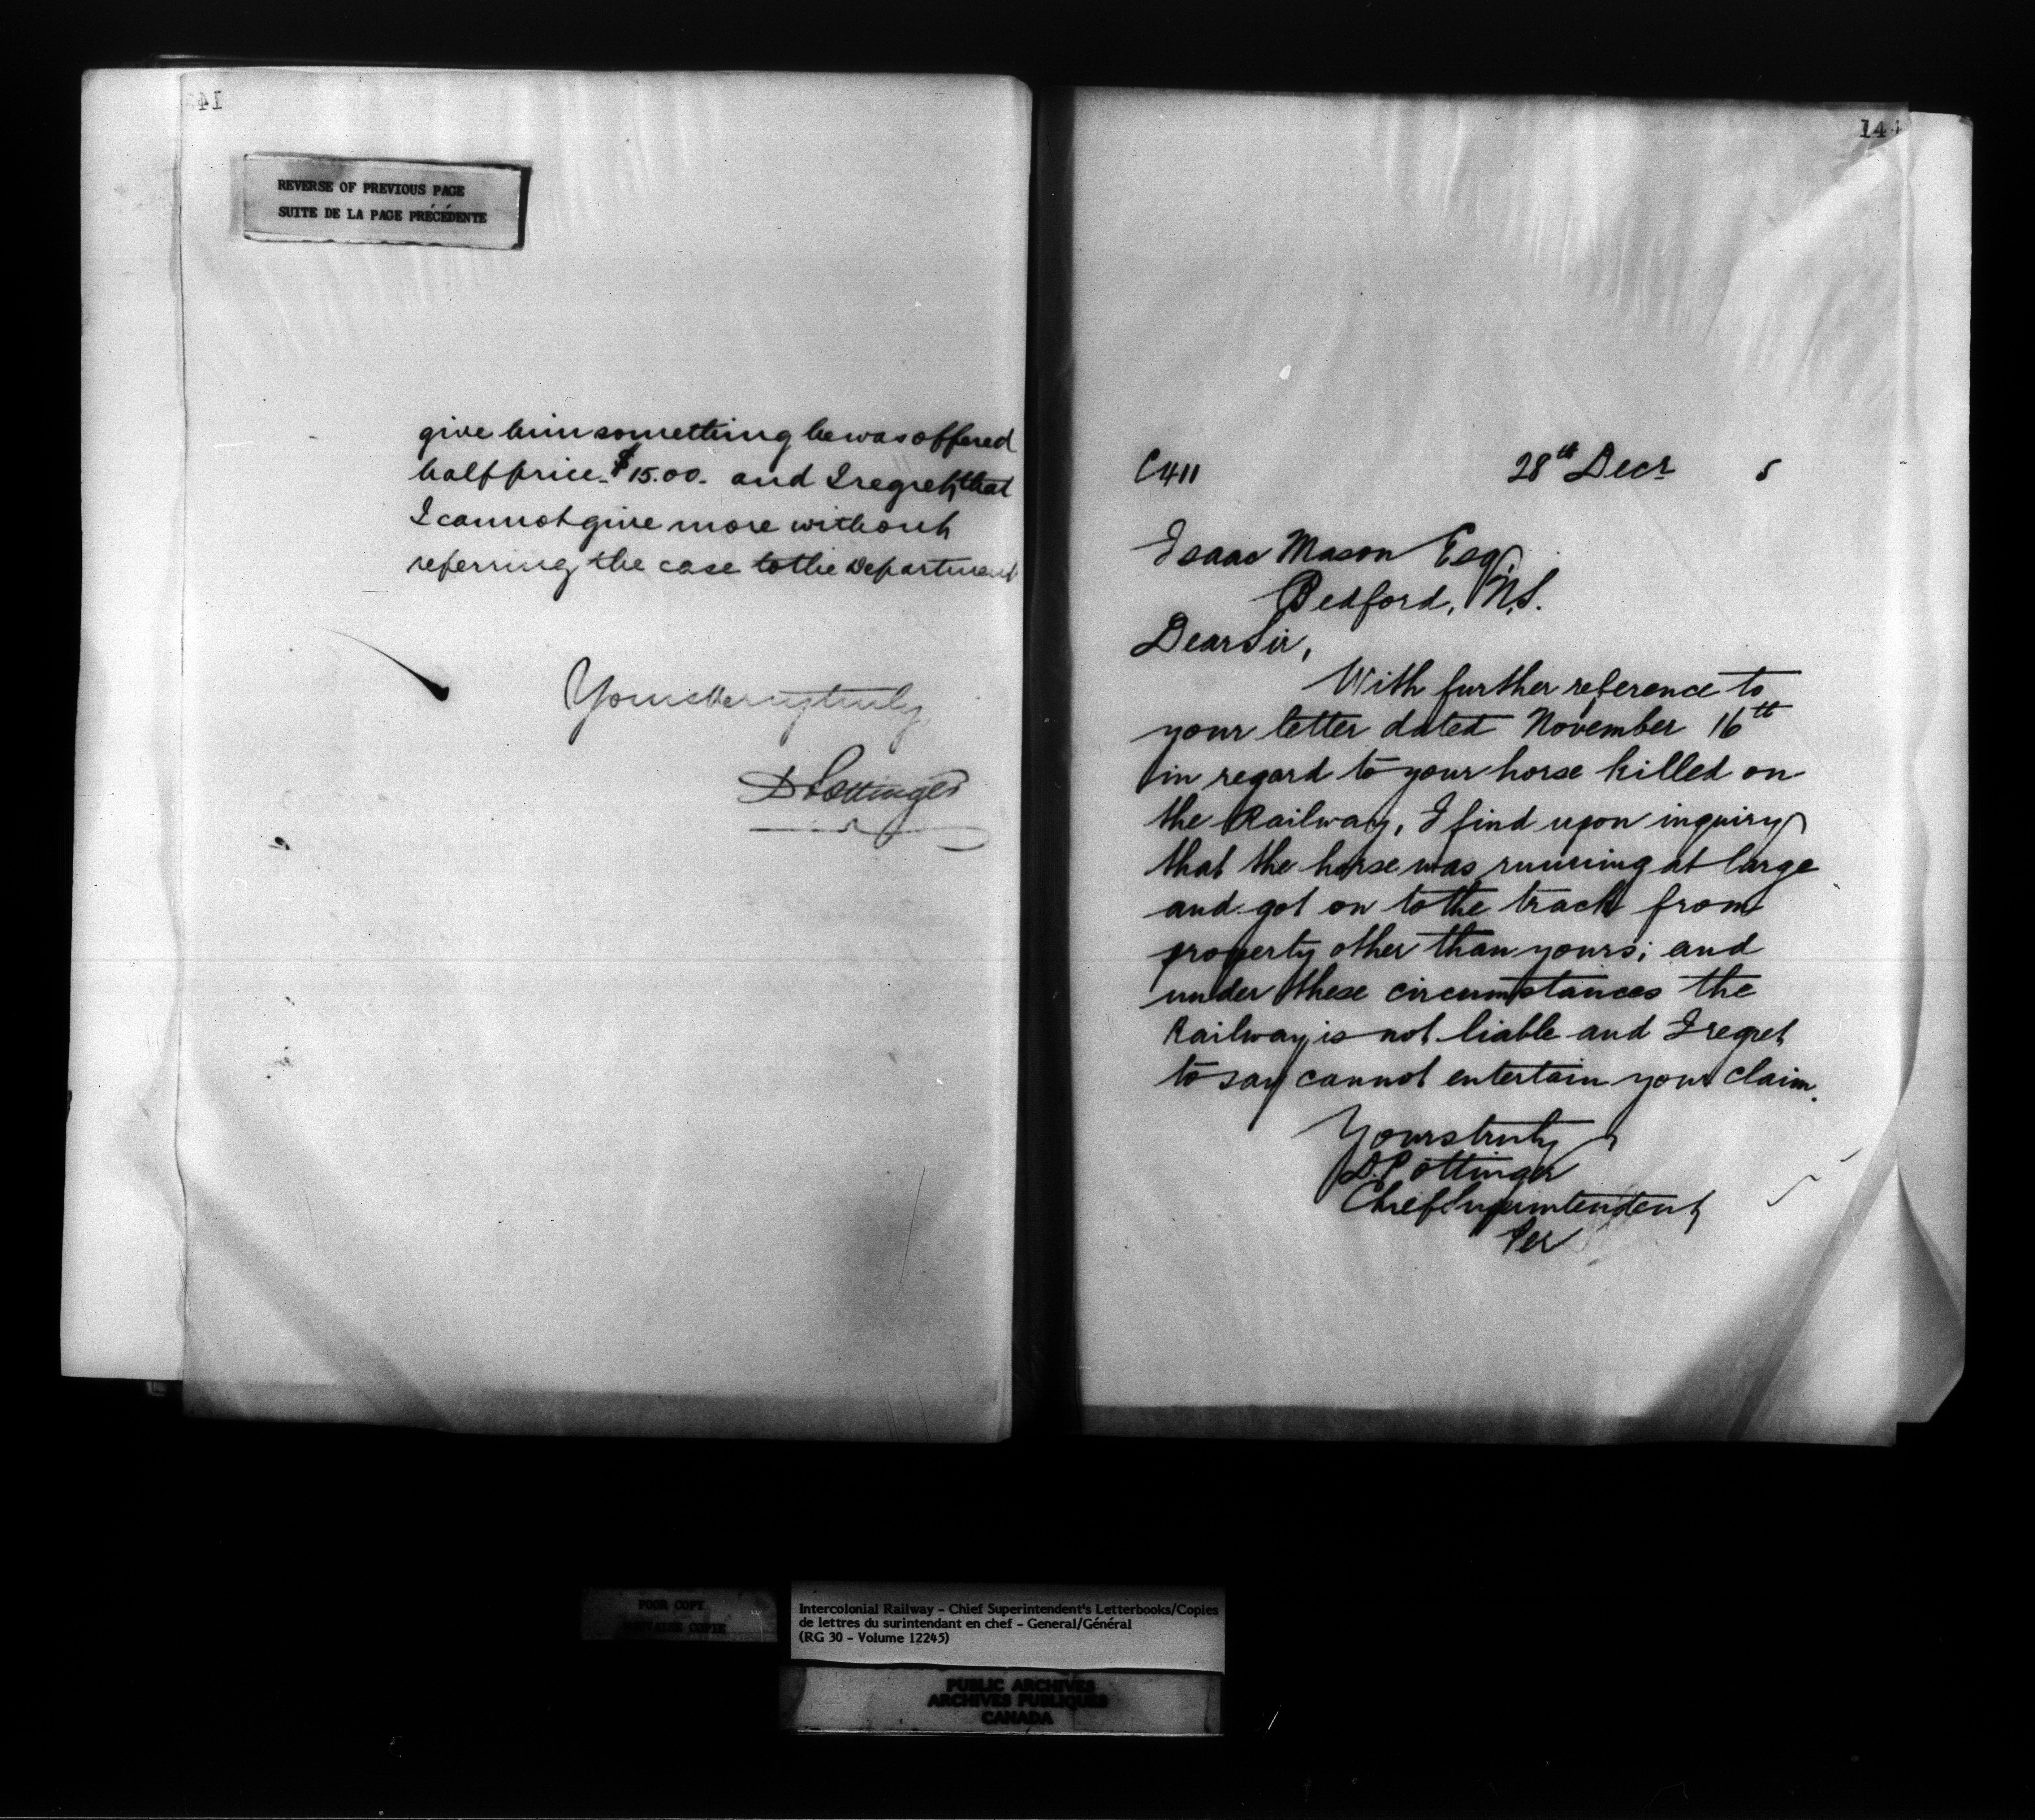 REVERSE OF PREVIOUS PAGE
SUITE DE LA PAGE PRÉCÉDENTE
give him something he was offered
half price - $15.00 - and I regret that
I cannot give more without
referring the case to the Department
Yours very truly,
D Pottinger
144
C411 28th Decr 5
Isaac Mason Esq.
Bedford, N.S.
Dear Sir,
With further reference to
your letter dated November 16th
in regard to your horse killed on
the Railway, I find upon inquiry
that the horse was running at large
and got on to the track from
property other than yours; and
under these circumstances the
Railway is not liable and I regret
to say cannot entertain your claim.
Yours truly
D. Pottinger
Chief Superintendent
Per
POOR COPY
MAUVAISE COPIE
Intercolonial Railway - Chief Superintendent's Letterbooks/Copies
de lettres du surintendant en chef - General/Général
(RG 30 - Volume 12245)
PUBLIC ARCHIVES
ARCHIVES PUBLIQUES
CANADA